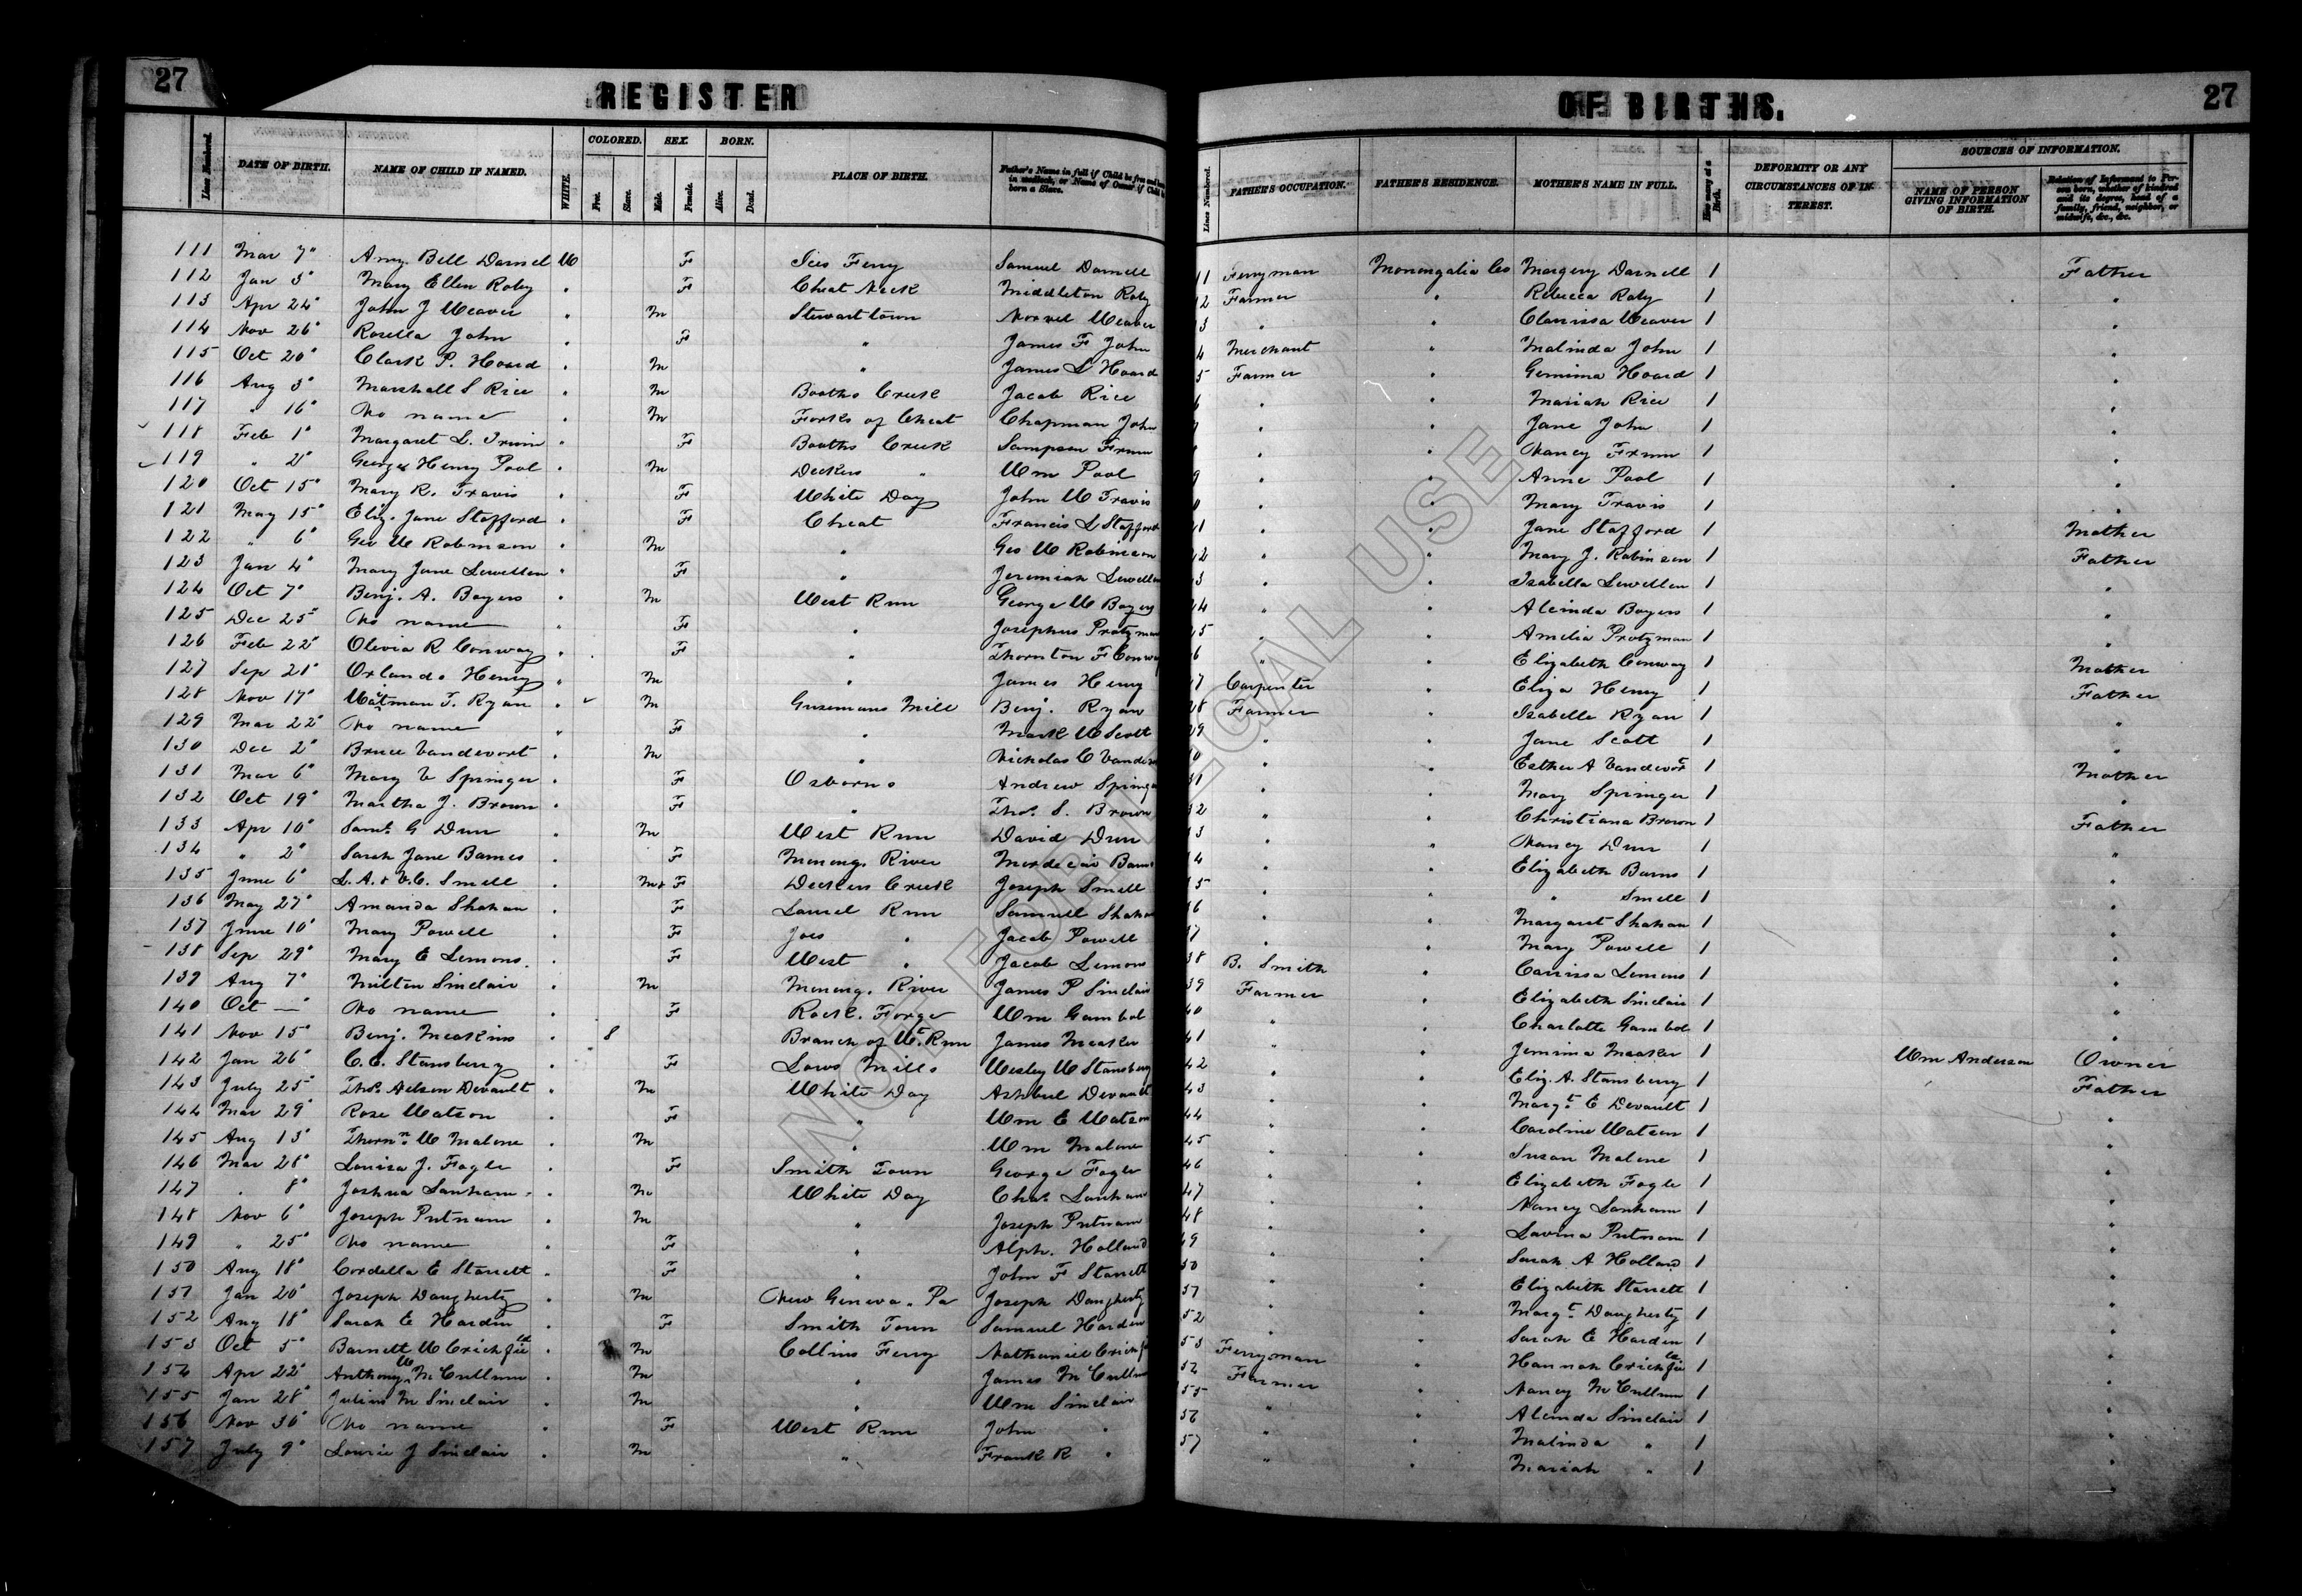 27 REGISTER OF BIRTHS. 27
Lines Numbered. DATE OF BIRTH. NAME OF CHILD IF NAMED. WHITE. COLORED. Free. Slave. SEX. Male. Female. BORN. Alive. Dead. PLACE OF BIRTH. Father's Name in full if Child be free and born in wedlock, or Name of Owner if Child be born a Slave. Lines Numbered. FATHER'S OCCUPATION. FATHER'S RESIDENCE. MOTHER'S NAME IN FULL. How many at a Birth. DEFORMITY OR ANY CIRCUMSTANCES OF INTEREST. SOURCES OF INFORMATION. NAME OF PERSON GIVING INFORMATION OF BIRTH. Relation of Informant to Person born, whether of kindred and its degree, head of a family, friend, neighbor, or midwife, &c., &c.
111 Mar 7" Amy Bell Darnel W F Ices Ferry Samuel Darnell 11 Ferryman Monongalia Co Margery Darnell 1 Father
112 Jan 3" Mary Ellen Roby " F Cheat Neck Middleton Roby 12 Farmer " Rebecca Roby 1 "
113 Apr 24" John J Weaver " M Stewarttown Norvel Weaver 13 " " Clarissa Weaver 1 "
114 Nov 26" Rosella John " F " James F John 4 Merchant " Malinda John 1 "
115 Oct 20" Clark P. Hoard " M " James L Hoard 5 Farmer " Gemima Hoard 1 "
116 Aug 3" Marshall S Rice " M Booths Creek Jacob Rice 6 " " Mariah Rice 1 "
117 " 16" No name " M Forks of Cheat Chapman John " " Jane John 1 "
118 Feb 1" Margaret L. " F Booths Creek Sampson Frum " " Nancy Frum 1 "
119 " 2" George Henry Pool " M Deckers " Wm Pool 9 " " Anne Pool 1 "
120 Oct 15" Mary R. Travis " F White Day John W Travis 0 " " Mary Travis 1 "
121 May 15" Eliz. Jane Stafford " F Cheat Francis L Stafford 21 " " Jane Stafford 1 Mother
122 " 6" Geo W Robinson " M " Geo W Robinson 22 " " Mary J. Robinson 1 Father
123 Jan 4" Mary Jane Lewellen " F " Jeremiah Lewellen 23 " " Isabella Lewellen 1 "
124 Oct 7" Benj. A. Boyers " M West Run George W Boyers 24 " " Alcinda Boyers 1 "
125 Dec 25" No name " F " Josephus Protzman 25 " " Amelia Protzman 1 "
126 Feb 22" Olivia R Conway " F " Thornton F Conway 6 " " Elizabeth Conway 1 Mother
127 Sep 21" Orlando Henry " M " James Henry 27 Carpenter " Eliza Henry 1 Father
128 Nov 17" Waitman T. Ryan " M Gusemans Mill Benj. Ryan 28 Farmer " Isabelle Ryan 1 "
129 Mar 22" No name " F " Mark W Scott 29 " " Jane Scott 1 "
130 Dec 2" Bruce Vandevort " M " Nicholas C Vandevo 0 " " Esther A Vandevort 1 Mother
131 Mar 6" Mary V Springer " F Osborns Andrew Springer 31 " " Mary Springer 1 "
132 Oct 19" Martha J. Brown " F " Thos. S. Brown 32 " " Christiana Brown 1 Father
133 Apr 10" Saml. G Dun " M West Run David Dun 13 " " Nancy Dun 1 "
134 " 2" Sarah Jane Barnes " F Monong. River Mordecai Barnes 14 " " Elizabeth Barns 1 "
135 June 6" L. A. & V. C. Smell " M & F Deckers Creek Joseph Smell 15 " " " Smell 1 "
136 May 27" Amanda Shahan " F Laurel Run Samuel Shahan 16 " " Margaret Shahan 1 "
137 June 10" Mary Powell " F Joes " Jacob Powell 17 " " Mary Powell 1 "
138 Sep 29" Mary E Lemons " F West " Jacob Lemons 38 B. Smith " Carissa Lemons 1 "
139 Aug 7" Milton Sinclair " M Monong. River James P Sinclair 39 Farmer " Elizabeth Sinclair 1 "
140 Oct — No name " F Rock. Forge Wm Gambol 40 " " Charlotte Gambol 1 "
141 Nov 15" Benj. Meakins " 8 Branch of Wt. Run James Meaker 41 " " Jemima Meaker 1 Wm Anderson Owner
142 Jan 26" C. E. Stansberry " F Laws Mills Wesley W Stansberry 42 " " Eliz. A. Stansberry 1 Father
143 July 25" Thos. Nelson Devault " M White Day Ashbel Devault 43 " " Margt. E Devault 1 "
144 Mar 29" Rose Watson " F " Wm E Watson 44 " " Caroline Watson 1 "
145 Aug 13" Thornn. W Malone " M " Wm Malone 45 " " Susan Malone 1 "
146 Mar 28" Louisa J. Fogle " F Smith Town George Fogle 46 " " Elizabeth Fogle 1 "
147 " 8" Joshua Lanham " M White Day Chas. Lanham 47 " " Nancy Lanham 1 "
148 Nov 6" Joseph Putnam " M " Joseph Putnam 48 " " Lavina Putnam 1 "
149 " 25" No name " F " Alph. Holland 49 " " Sarah A Holland 1 "
150 Aug 18" Cordella E Starrett " F " John F Starrett 50 " " Elizabeth Starrett 1 "
151 Jan 20" Joseph Daugherty " M New Geneva. Pa Joseph Daugherty 51 " " Margt. Daugherty 1 "
152 Aug 18" Sarah E Harden " F Smith Town Samuel Harden 52 " " Sarah E Harden 1 "
153 Oct 5" Barnett W Crichfield " M Collins Ferry Nathaniel Crichfi 53 Ferryman " Hannah Crichfield 1 "
154 Apr 22" Anthony W McCullum " M " James McCullum 54 Farmer " Nancy McCullum 1 "
155 Jan 28" Julius M Sinclair " M " Wm Sinclair 55 " " Alcinda Sinclair 1 "
156 Nov 30" No name " F West Run John " 56 " " Malinda " 1 "
157 July 9" Lourie J Sinclair " M " Frank R " 57 " " Mariah " 1 "
NOT FOR LEGAL USE